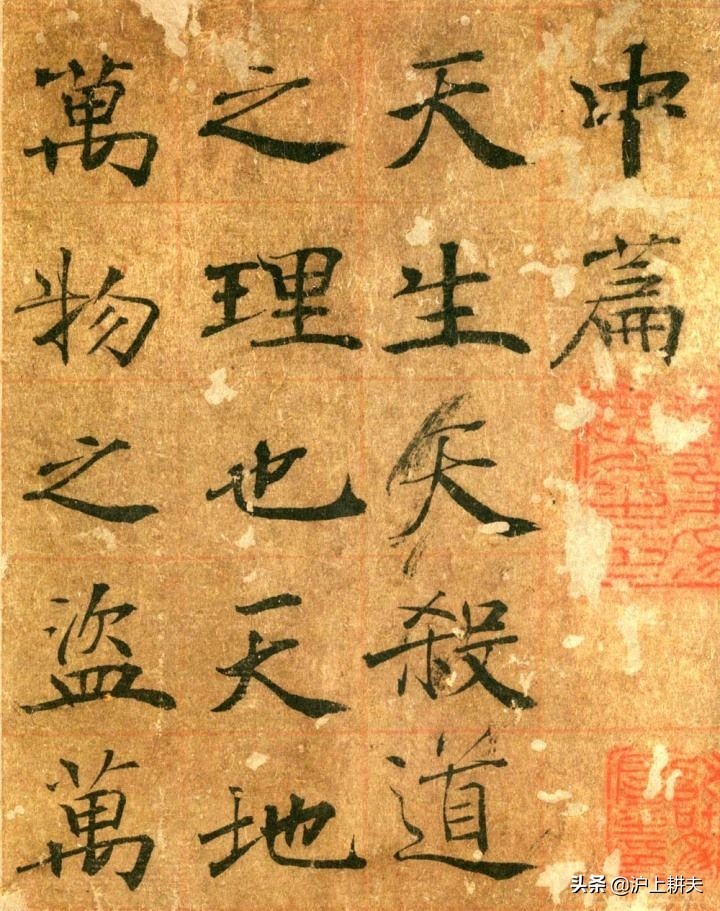 中篇
天生天殺道
之理也天地
萬物之盜萬
头条 @沪上耕夫